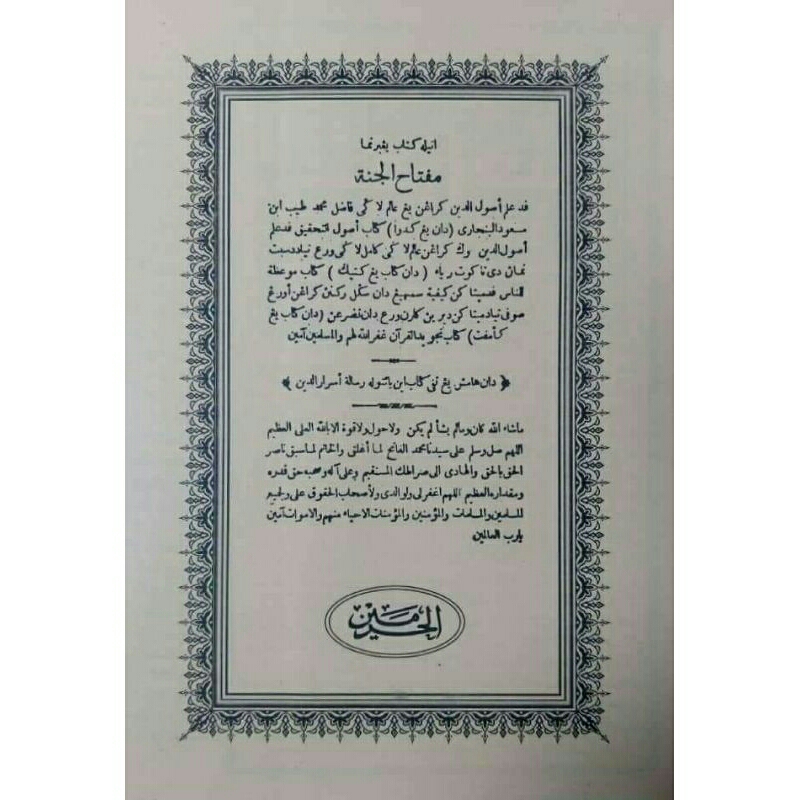 انيله كتاب يڠبرنما
مفتاح الجنة
فد علم أصول الدين كراڠن يڠ عالم لاݢي فاضل محمد طيب ابن
مسعود البنجاري (دان يڠ كدوا) كتاب أصول التحقيق فد علم
أصول الدين كراڠن عالم لاݢي كامل لاݢي ورع تياد دسبت
نمان دي تاكوت رياء (دان كتاب يڠ كتيݢ) كتاب موعظة
للناس كيفية سمبهيڠ دان سݢل ركنڽ كراڠن أورڠ
صوفي تياد مباكن ديرين كارن ورع دان (دان كتاب يڠ
كأمفت) كتاب تجويد القرآن غفر الله لهم والمسلمين آمين
﴿دان هامش يڠ تفي كتاب اين ياءيتوله رسالة أسرار الدين﴾
ماشاء الله كان ومالم يشأ لم يكن ولاحول ولاقوة الابالله العلى العظيم
اللهم صل وسلم على سيدنا محمد الفاتح لما أغلق والخاتم لما سبق ناصر
الحق بالحق والهادى الى صراطك المستقيم وعلى آله وصحبه حق قدره
ومقداره العظيم اللهم اغفرلى ولوالدى ولأصحاب الحقوق على ولجميع
المسلمين والمسلمات والمؤمنين والمؤمنات الاحياء منهم والاموات آمين
يارب العالمين
الحرمين